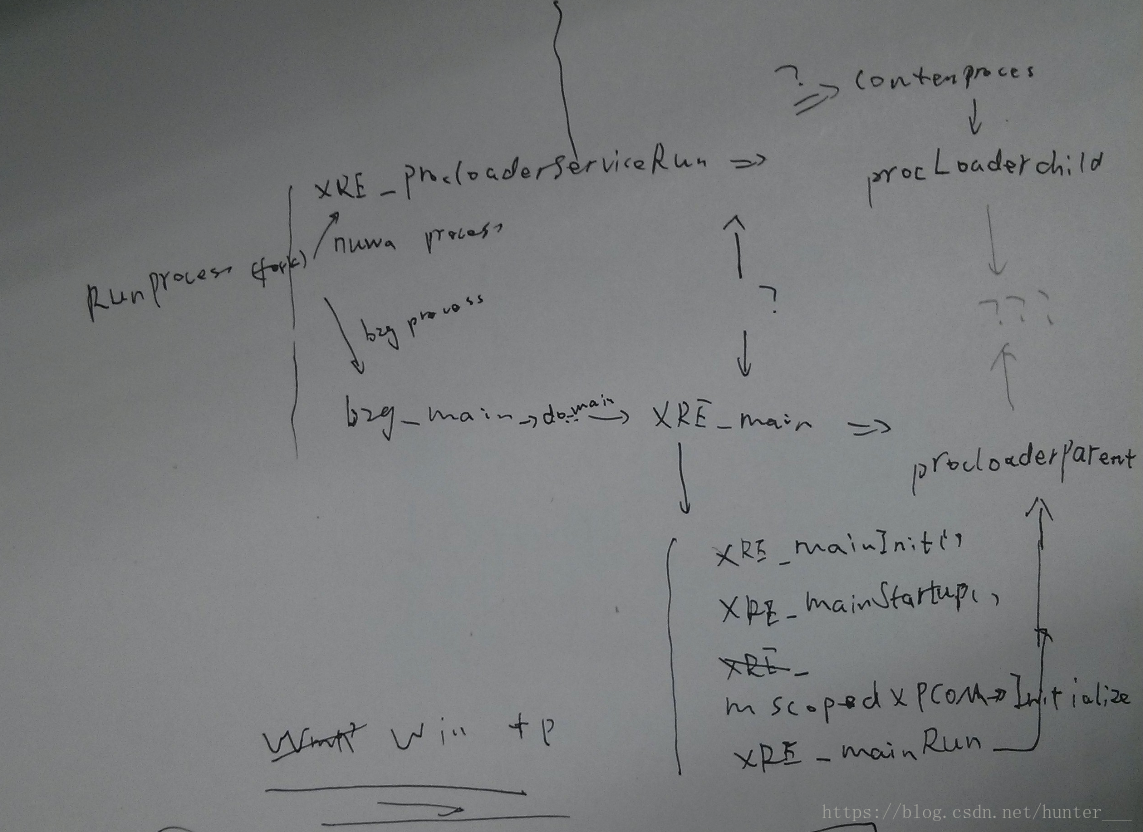 ? => contenproces
XRE_procloaderserviceRun =>
procLoaderchild
nuwa process
Runprocess (fork)
?
???
b2g process
b2g_main → do_main → XRE_main =>
procloaderparent
XRE_mainInit()
XRE_mainStartup()
XRE_
mscopedXPCOM→Initialize
Win + p
XRE_mainRun
https://blog.csdn.net/hunter___